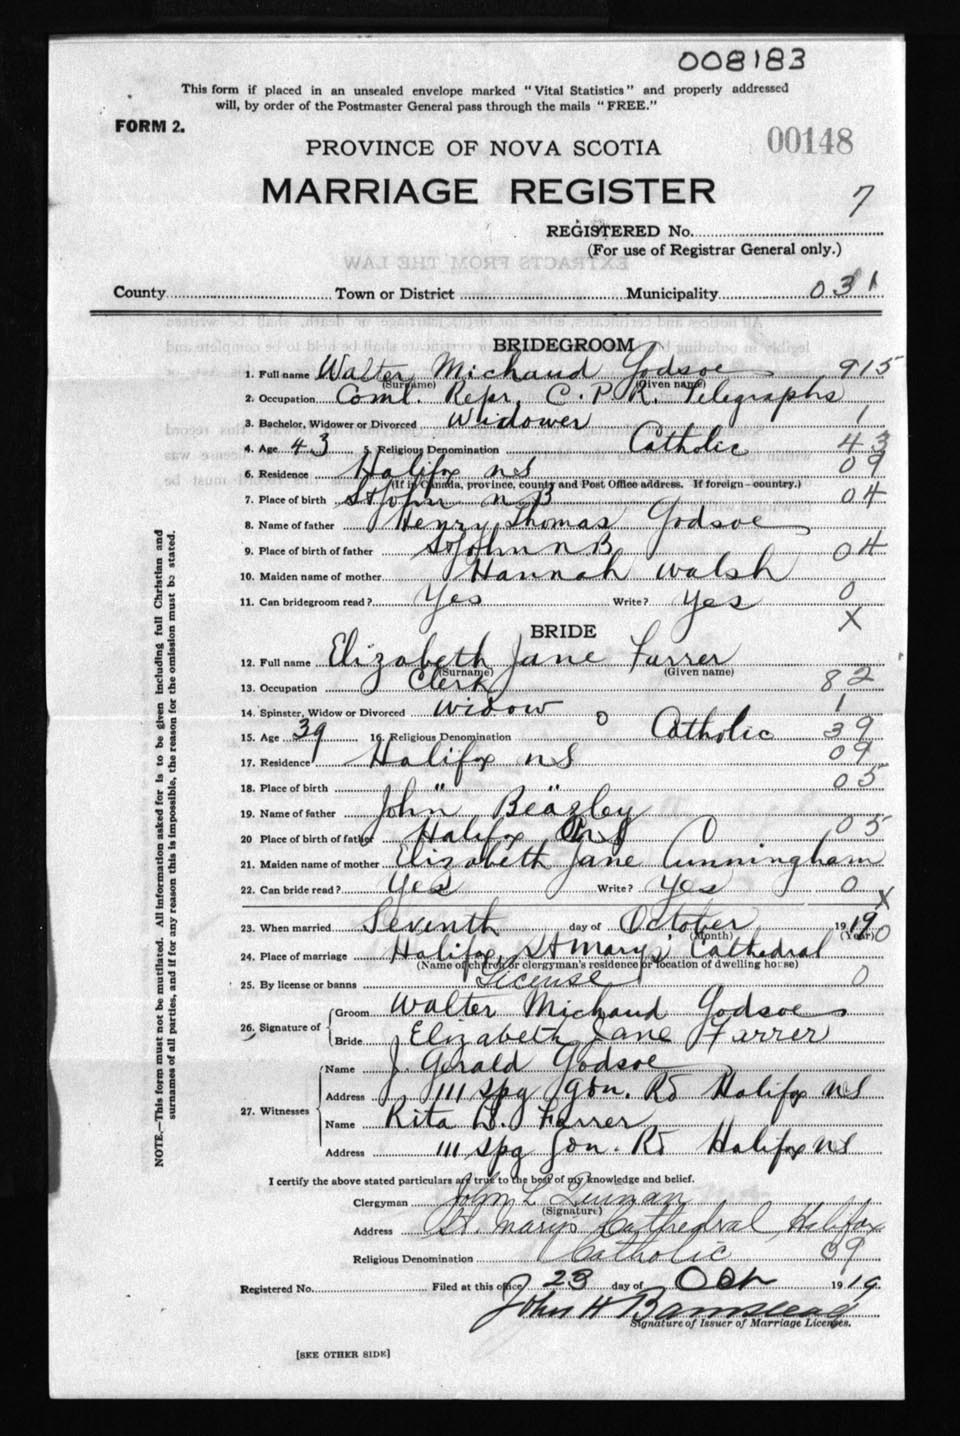 008183
This form if placed in an unsealed envelope marked "Vital Statistics" and properly addressed
will, by order of the Postmaster General pass through the mails "FREE."
FORM 2.
00148
PROVINCE OF NOVA SCOTIA
MARRIAGE REGISTER
7
REGISTERED No.
(For use of Registrar General only.)
County Town or District Municipality 031
BRIDEGROOM
1. Full name Walter Michaud Godsoe 915
(Surname) (Given name)
2. Occupation Coml. Repr. C.P.R. Telegraphs
3. Bachelor, Widower or Divorced Widower 1
4. Age 43 5. Religious Denomination Catholic 43
6. Residence Halifax NS 09
(If in Canada, province, county and Post Office address. If foreign - country.)
7. Place of birth St John NB 04
8. Name of father Henry Thomas Godsoe
9. Place of birth of father St John NB 04
10. Maiden name of mother Hannah Walsh
11. Can bridegroom read? Yes Write? Yes 0
X
BRIDE
12. Full name Elizabeth Jane Farrer
(Surname) (Given name)
13. Occupation Clerk 82
14. Spinster, Widow or Divorced Widow 1
15. Age 39 16. Religious Denomination 0 Catholic 39
17. Residence Halifax NS 09
18. Place of birth " " 05
19. Name of father John Beazley
20 Place of birth of father Halifax NS 05
21. Maiden name of mother Elizabeth Jane Cunningham
22. Can bride read? Yes Write? Yes 0
X
23. When married Seventh day of October 1919 0
(Month) (Year)
24. Place of marriage Halifax, St Mary's Cathedral
(Name of church or clergyman's residence or location of dwelling house)
25. By license or banns License 0
26. Signature of
Groom Walter Michaud Godsoe
Bride Elizabeth Jane Farrer
27. Witnesses
Name J. Gerald Godsoe
Address 111 Spg Gdn. Rd Halifax NS
Name Rita Farrer
Address 111 Spg Gdn. Rd Halifax NS
I certify the above stated particulars are true to the best of my knowledge and belief.
Clergyman John L Quinan
(Signature)
Address St. Marys Cathedral, Halifax
Religious Denomination Catholic 09
Registered No. Filed at this office 23 day of Oct 1919
John H Barnstead
Signature of Issuer of Marriage Licenses.
[SEE OTHER SIDE]
NOTE.—This form must not be mutilated. All information asked for is to be given including full Christian and
surnames of all parties, and if for any reason this is impossible, the reason for the omission must be stated.